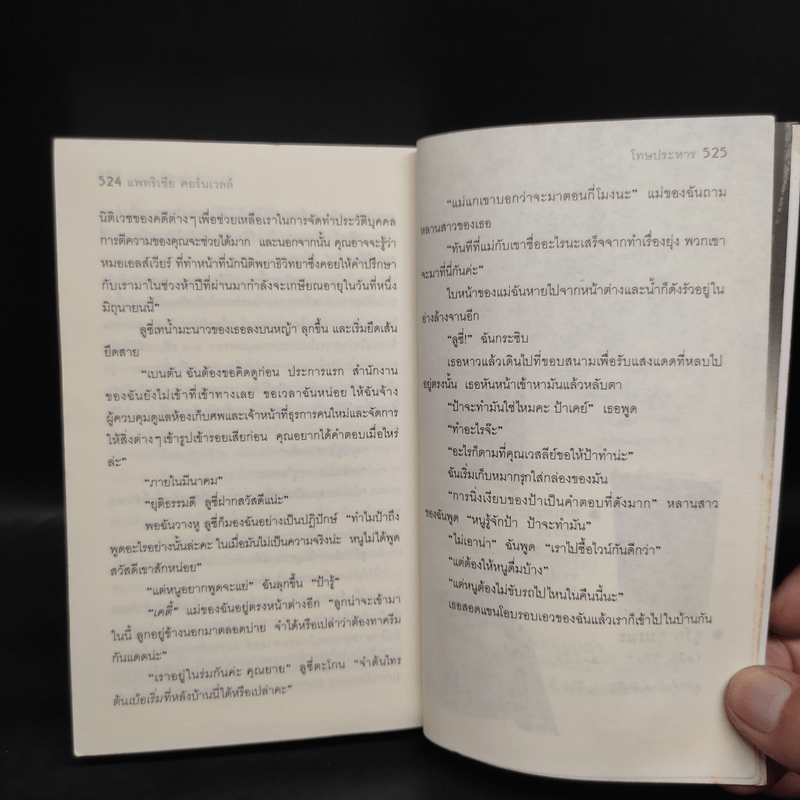 524 แพทริเซีย คอร์นเวลล์
นิติเวชของคดีต่างๆ เพื่อช่วยเหลือเราในการจัดทำประวัติบุคคล
การตีความของคุณจะช่วยได้มาก และนอกจากนั้น คุณอาจจะรู้ว่า
หมอเอลส์เวียร์ ที่ทำหน้าที่นักนิติพยาธิวิทยาซึ่งคอยให้คำปรึกษา
กับเรามาในช่วงห้าปีที่ผ่านมากำลังจะเกษียณอายุในวันที่หนึ่ง
มิถุนายนนี้”
ลูซี่เทน้ำมะนาวของเธอลงบนหญ้า ลุกขึ้น และเริ่มยืดเส้น
ยืดสาย
“เบนตัน ฉันต้องขอคิดดูก่อน ประการแรก สำนักงาน
ของฉันยังไม่เข้าที่เข้าทางเลย ขอเวลาฉันหน่อย ให้ฉันจ้าง
ผู้ควบคุมดูแลห้องเก็บศพและเจ้าหน้าที่ธุรการคนใหม่และจัดการ
ให้สิ่งต่างๆ เข้ารูปเข้ารอยเสียก่อน คุณอยากได้คำตอบเมื่อไหร่
ล่ะ”
“ภายในมีนาคม”
“ยุติธรรมดี ลูซี่ฝากสวัสดีแน่ะ”
พอฉันวางหู ลูซี่ก็มองฉันอย่างเป็นปฏิปักษ์ “ทำไมป้าถึง
พูดอะไรอย่างนั้นล่ะคะ ในเมื่อมันไม่เป็นความจริงน่ะ หนูไม่ได้พูด
สวัสดีเขาสักหน่อย”
“แต่หนูอยากพูดจะแย่” ฉันลุกขึ้น “ป้ารู้”
“เคตี้” แม่ของฉันอยู่ตรงหน้าต่างอีก “ลูกน่าจะเข้ามา
ในนี้ ลูกอยู่ข้างนอกมาตลอดบ่าย จำได้หรือเปล่าว่าต้องทาครีม
กันแดดน่ะ”
“เราอยู่ในร่มกันค่ะ คุณยาย” ลูซี่ตะโกน “จำต้นไทร
ต้นเบ้อเริ่มที่หลังบ้านนี้ได้หรือเปล่าคะ”
โทษประหาร 525
“แม่แกเขาบอกว่าจะมาตอนกี่โมงนะ” แม่ของฉันถาม
หลานสาวของเธอ
“ทันทีที่แม่กับเขาชื่ออะไรนะเสร็จจากทำเรื่องยุ่ง พวกเขา
จะมาที่นี่กันค่ะ”
ใบหน้าของแม่ฉันหายไปจากหน้าต่างและน้ำก็ดังรัวอยู่ใน
อ่างล้างจานอีก
“ลูซี่!” ฉันกระซิบ
เธอหาวแล้วเดินไปที่ขอบสนามเพื่อรับแสงแดดที่หลบไป
อยู่ตรงนั้น เธอหันหน้าเข้าหามันแล้วหลับตา
“ป้าจะทำมันใช่ไหมคะ ป้าเคย์” เธอพูด
“ทำอะไรจ๊ะ”
“อะไรก็ตามที่คุณเวสลีย์ขอให้ป้าทำน่ะ”
ฉันเริ่มเก็บหมากรุกใส่กล่องของมัน
“การนิ่งเงียบของป้าเป็นคำตอบที่ดังมาก” หลานสาว
ของฉันพูด “หนูรู้จักป้า ป้าจะทำมัน”
“ไม่เอาน่า” ฉันพูด “เราไปซื้อไวน์กันดีกว่า”
“แต่ต้องให้หนูดื่มบ้าง”
“แต่หนูต้องไม่ขับรถไปไหนในคืนนี้นะ”
เธอสอดแขนโอบรอบเอวของฉันแล้วเราก็เข้าไปในบ้านกัน